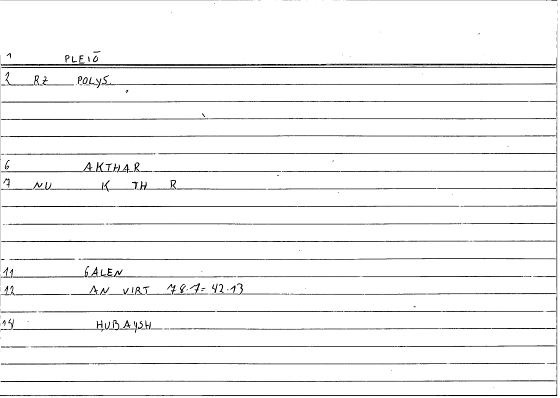 1 PLEIŌ
2 RZ POLYS
6 AKTHAR
7 NU K TH R
11 GALEN
12 AN VIRT 78.7=42.13
14 HUBAYSH